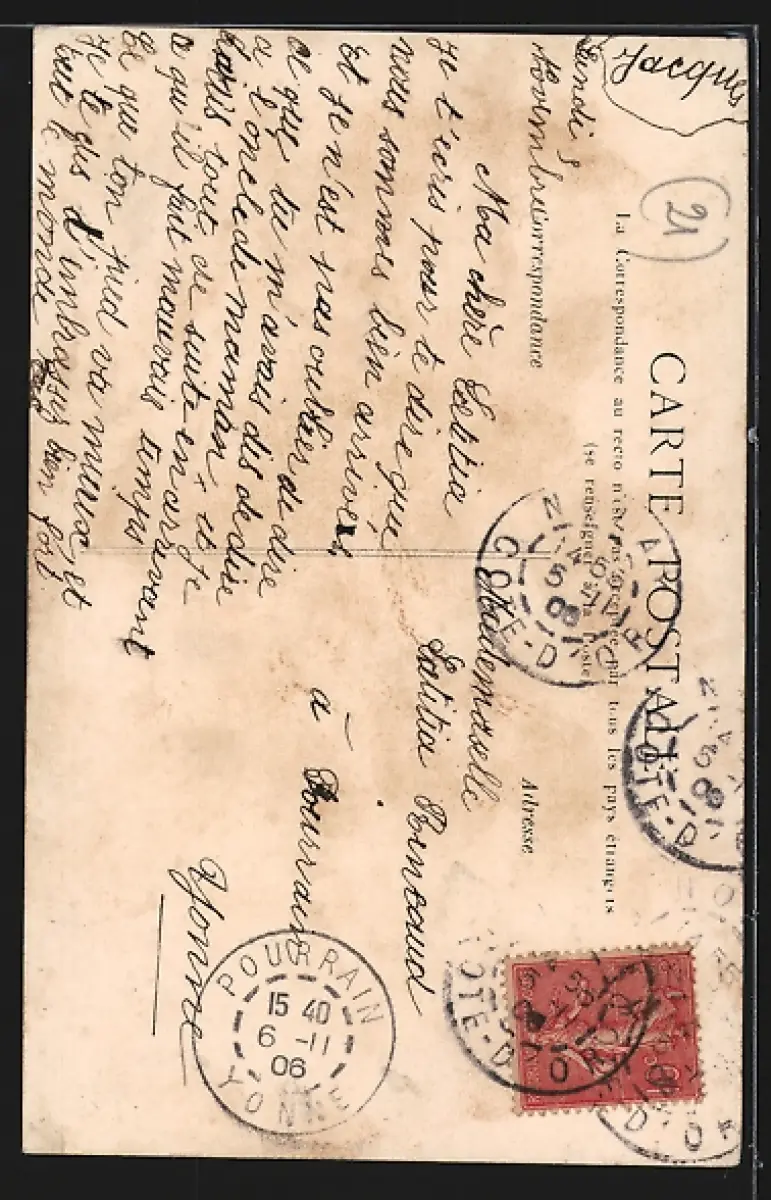 Jacques
21
CARTE POSTALE
La Correspondance au recto n'est pas acceptée par tous les pays étrangers
(se renseigner à la Poste)
Correspondance
Adresse
Lundi 5
Novembre
Ma chère Letitia
Je t'ecris pour te dire que
nous sommes bien arrivés
Et je n'est pas oublier de dire
ce que tu m'avais dis de dire
a l'oncle de maman, et je
écris tout de suite en arrivant
qu'il fait mauvais temps
Et que ton pied va mieux et
je te dis d'embrasser bien fort
tout le monde
Mademoiselle
Letitia Renaud
à Pourrain
Yonne
POURRAIN
15 40
6 -11
06
YONNE
COTE-D'OR
COTE-D'OR
COTE-D'OR